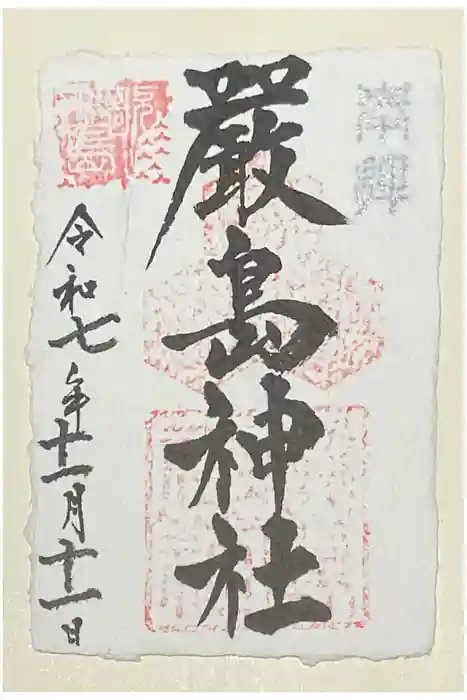 奉拝
嚴島神社
令和七年十一月十一日